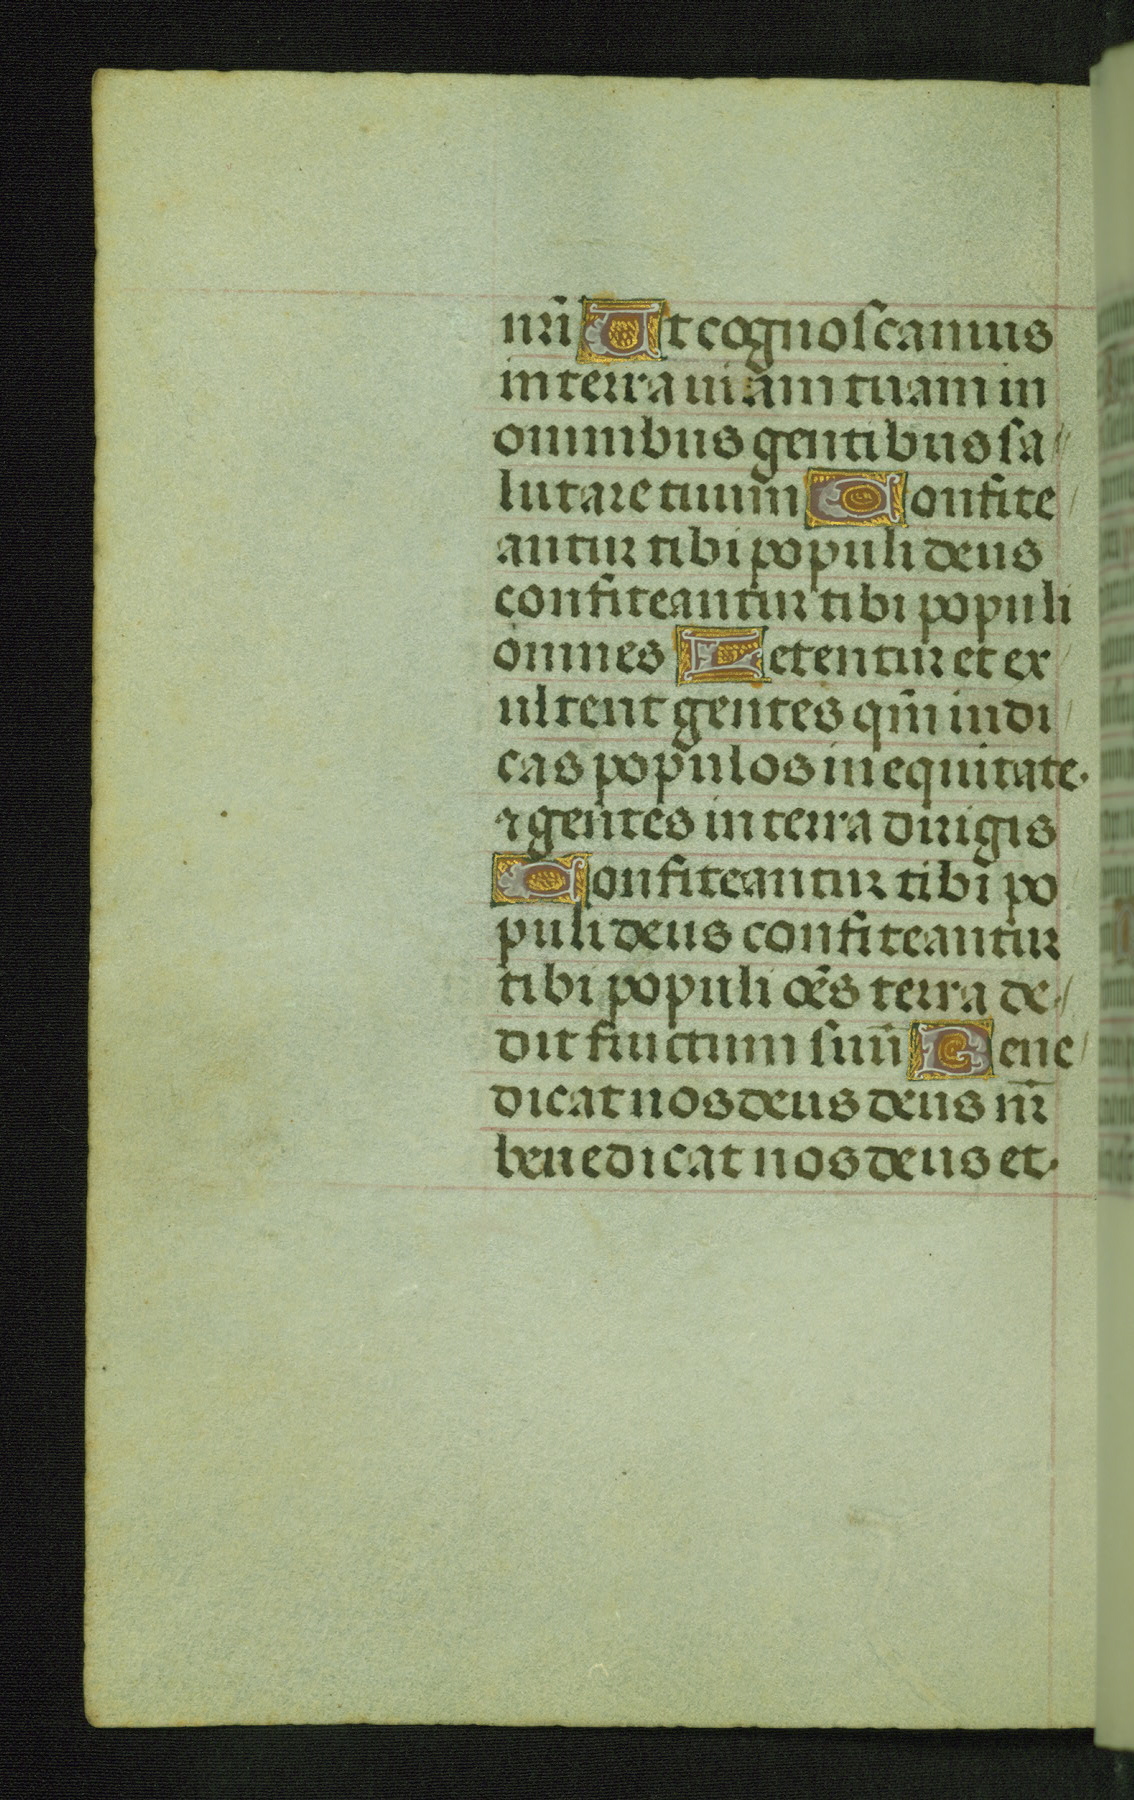 nr̄i Ut cognoſcamus
in terra uiam tuam in
omnibus gentibus ſa⸗
lutare tuum̄ Confite
antur tibi populi deus
confiteantur tibi populi
omnes Letentur et ex
ultent gentes qm̄ iudi
cas populos in equitate·
⁊ gentes in terra dirigis
Confiteantur tibi po
puli deus confiteantur
tibi populi oēs terra de⸗
dit fructum ſuū Bene
dicat nos deus deus nr̄
benedicat nos deus et·